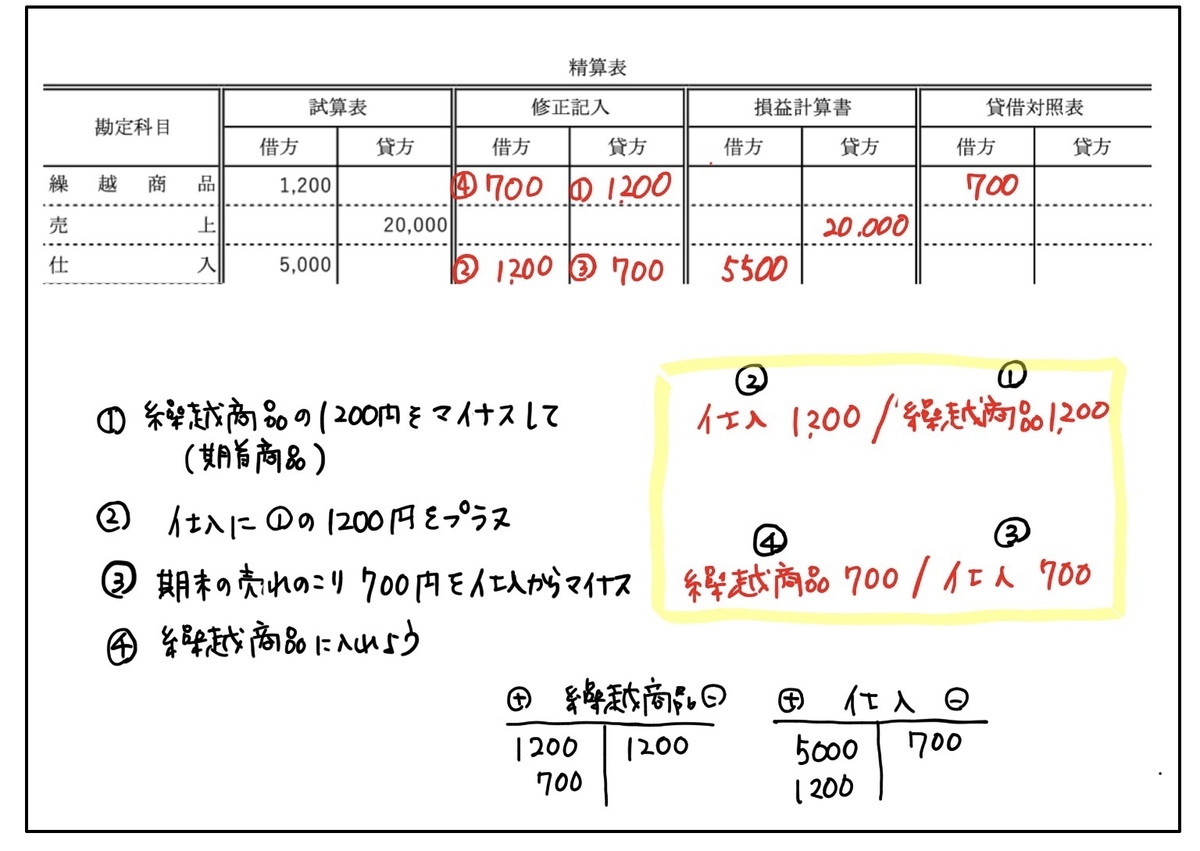 精算表
勘定科目 試算表 修正記入 損益計算書 貸借対照表
借方 貸方 借方 貸方 借方 貸方 借方 貸方
繰越商品 1,200 ④700 ①1,200 700
売上 20,000 20,000
仕入 5,000 ②1,200 ③700 5500
①繰越商品の1200円をマイナスして
(期首商品)
②仕入に①の1200円をプラス
③期末の売れのこり700円を仕入からマイナス
④繰越商品に入れよう
② ①
仕入 1,200 / 繰越商品1,200
④ ③
繰越商品 700 / 仕入 700
⊕ 繰越商品 ⊖
1200 1200
700
⊕ 仕入 ⊖
5000 700
1200